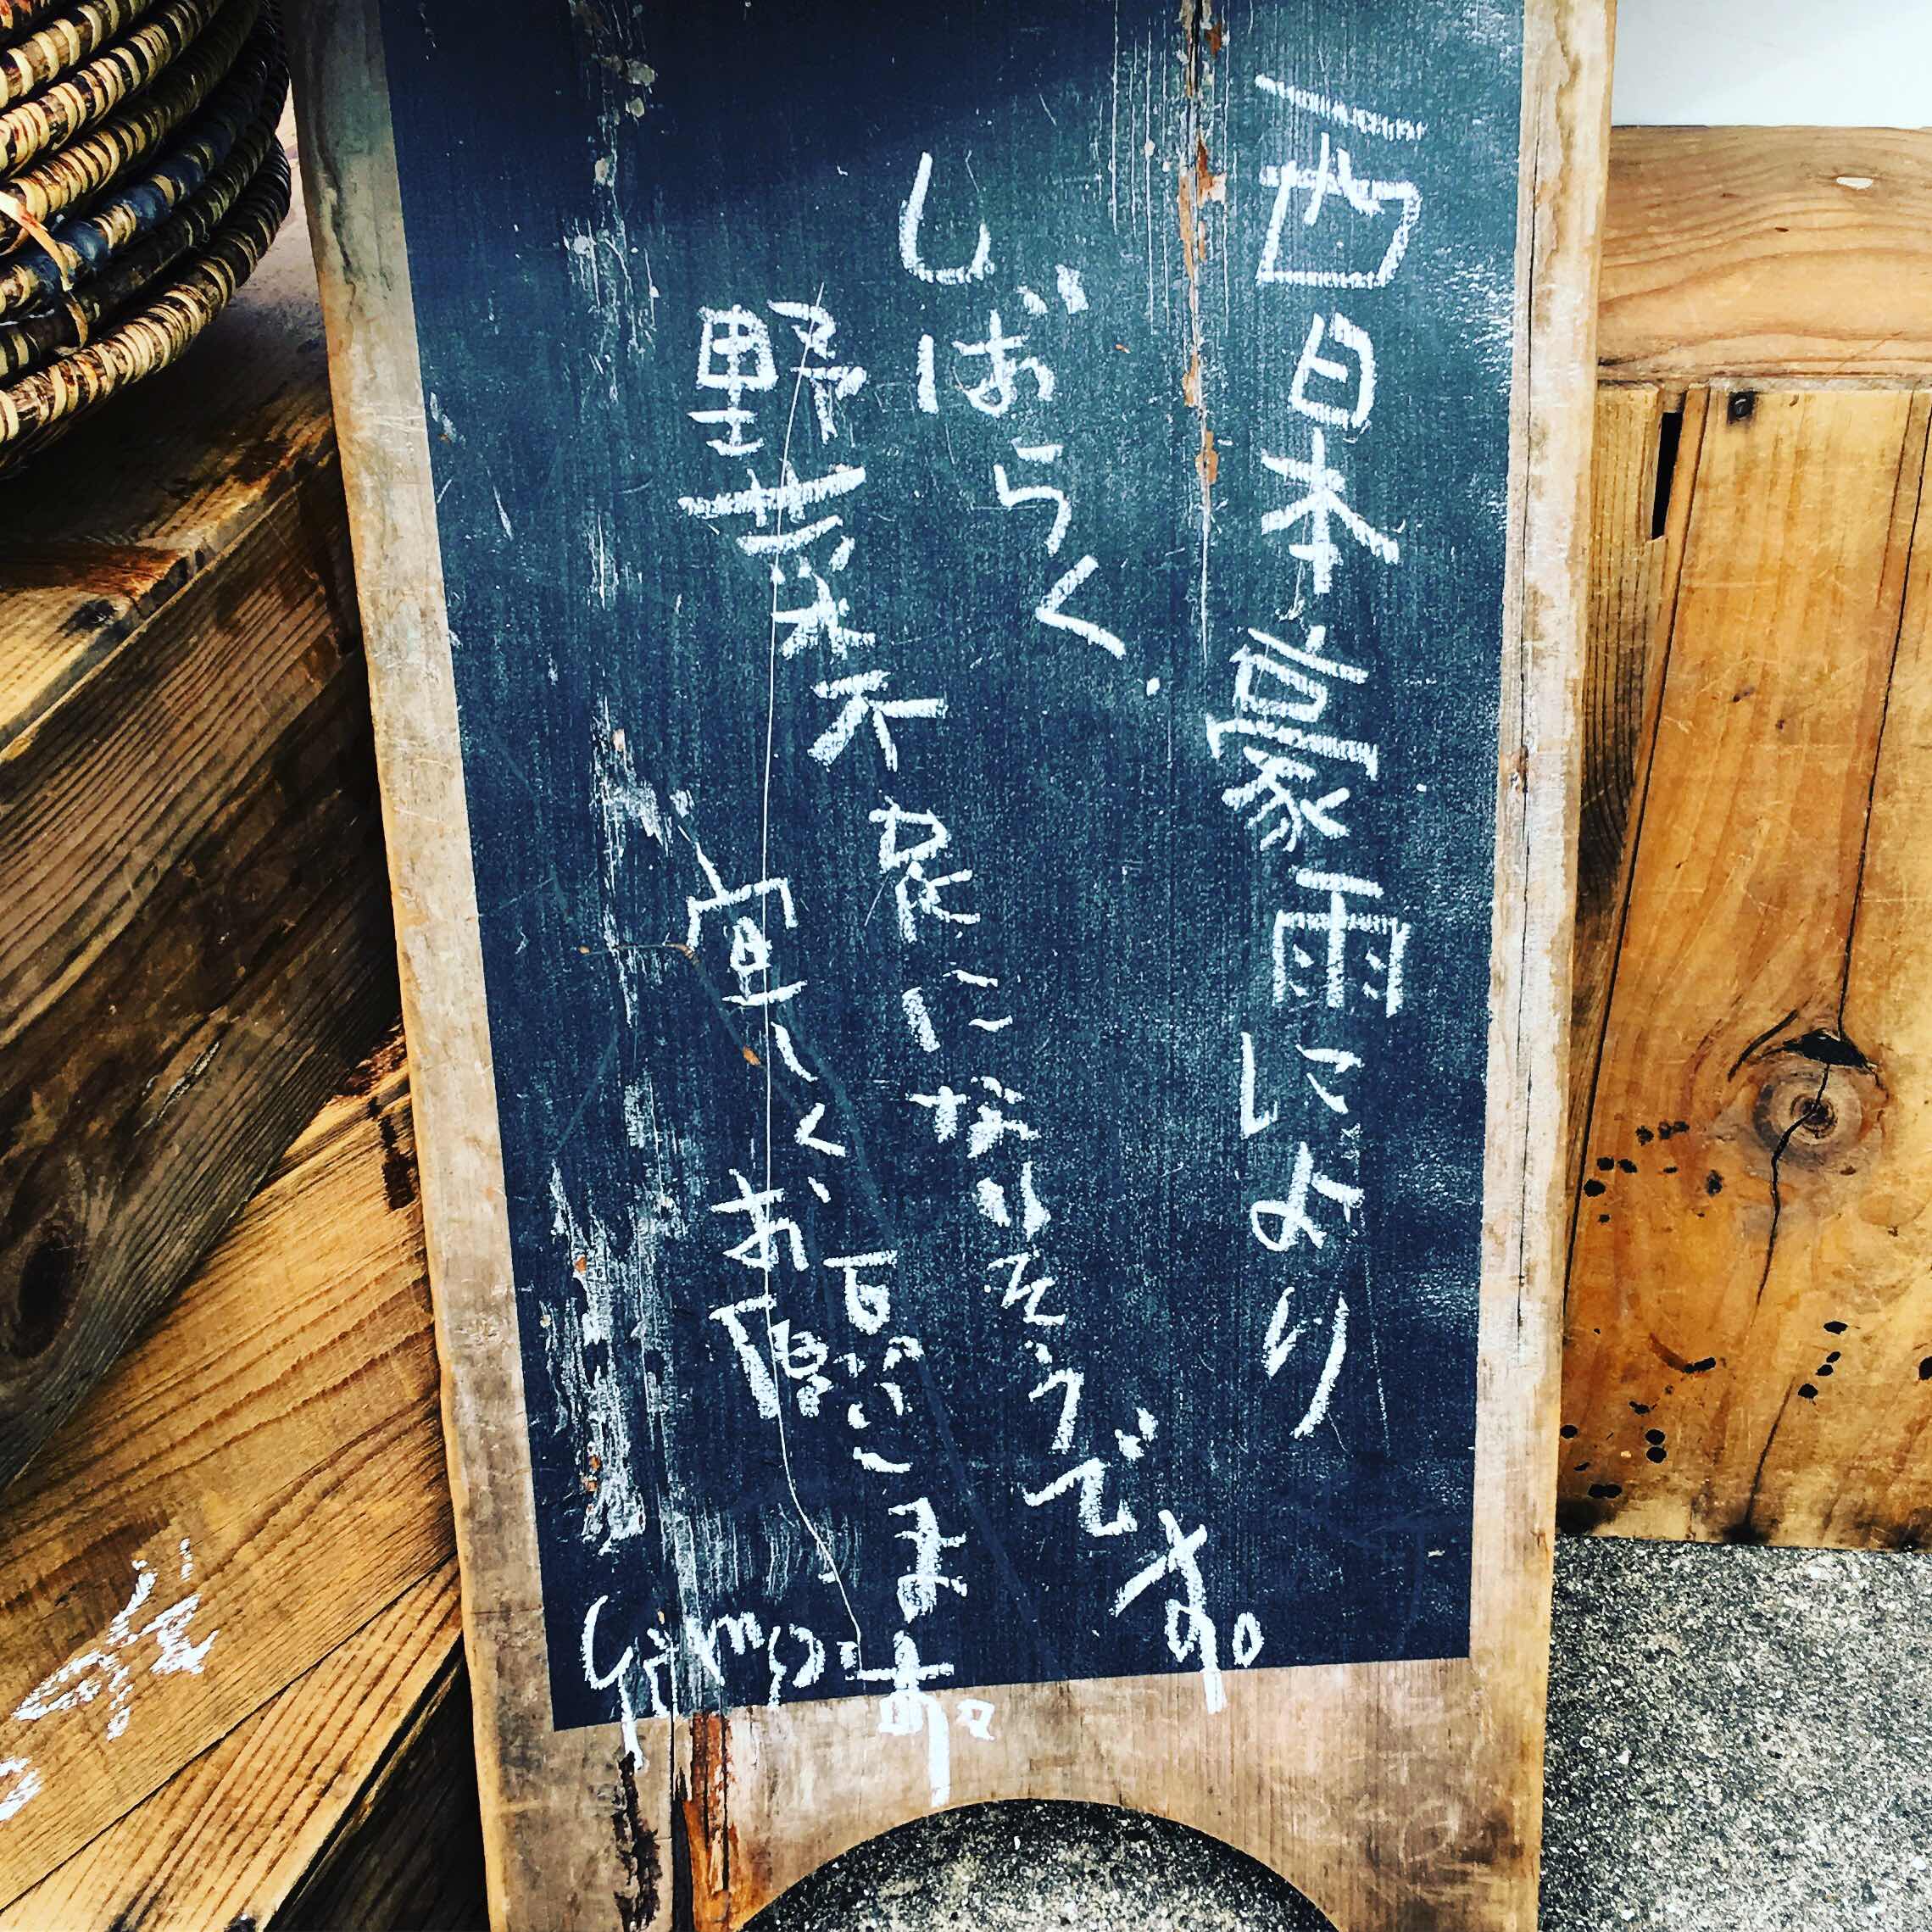 西日本豪雨により
しばらく
野菜不足になりそうです。
宜しくお願いします。